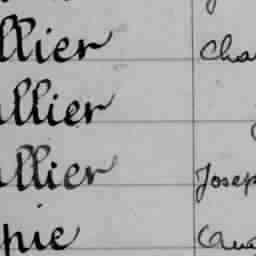 llier Cha
llier
llier Josep
pie